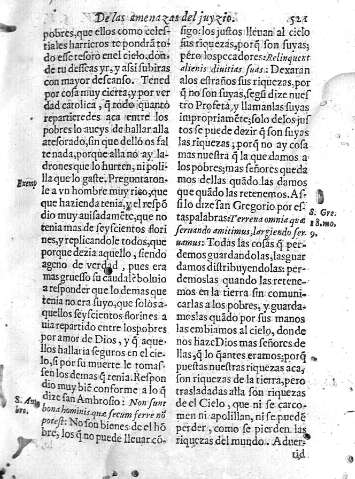 De las amenazas del juyzio. 521
pobres, que ellos como celes-
tiales harrieros te pondrã to-
do esse tesoro en el cielo, don-
de tu desseas yr, y assi subiras
con mayor descanso. Tened
por cosa muy cierta, y por ver
dad catolica, q̃ todo quanto
repartieredes aca entre los
pobres lo aueys de hallar alla
atesorado, sin que dello os fal
te nada, porque alla no ay la-
drones que lo hurten, ni poli-
lla que lo gaste. Preguntaron-
Exemp
le a vn hombre muy rico, que
que hazienda tenia, y el respõ
dio muy auisadamẽte, que no
tenia mas de seyscientos flori
nes, y replicandole todos, que
porque dezia aquello, siendo
ageno de verdad, pues era
mas gruesso su caudal: boluio
a responder que lo demas que
tenia no era suyo, que solos a-
quellos seyscientos florines a
uia repartido entre los pobres
por amor de Dios, y q̃ aque-
llos hallaria seguros en el cie-
lo, si por su muerte le tomas-
sen los demas q̃ tenia. Respõ
dio muy biẽ conforme a lo q̃
S. Am
bro.
dize san Ambrosio: Non sunt
bona hominis quæ secum ferre nõ
potest: No son bienes de el hõ
bre, los q̃ no puede lleuar cõ-
sigo: los justos lleuan al cielo
sus riquezas, porq̃ son suyas;
pero los pecadores: Relinquent
alienis diuitias suas: Dexaran
a los estraños sus riquezas, por
q̃ no son suyas, segũ dize nues
tro Profeta, y llamanlas suyas
impropriamẽte; solo de los jus
tos se puede dezir q̃ son suyas
las riquezas; porq̃ no ay cosa
mas nuestra q̃ la que damos a
los pobres; mas señores queda
mos dellas quãdo las damos
que quãdo las retenemos. As-
si lo dize san Gregorio por es-
S. Gre.
18. mo.
9.
tas palabras: Terrena omnia quæ
seruando amitimus, largiendo ser
uamus: Todas las cosas q̃ per-
demos guardandolas, las guar
damos distribuyendolas: per-
demoslas quando las retene-
mos en la tierra sin comuni-
carlas a los pobres, y guarda-
mos las quãdo por sus manos
las embiamos al cielo, de don
de nos haze Dios mas señores de
llas, q̃ lo q̃ antes eramos; porq̃
puestas nuestras riquezas aca,
son riquezas de la tierra, pero
trasladadas alla son riquezas
de el Cielo, que ni se carco-
men ni apolillan, ni se puedẽ
perder, como se pierden las
riquezas del mundo. Aduer-
tid